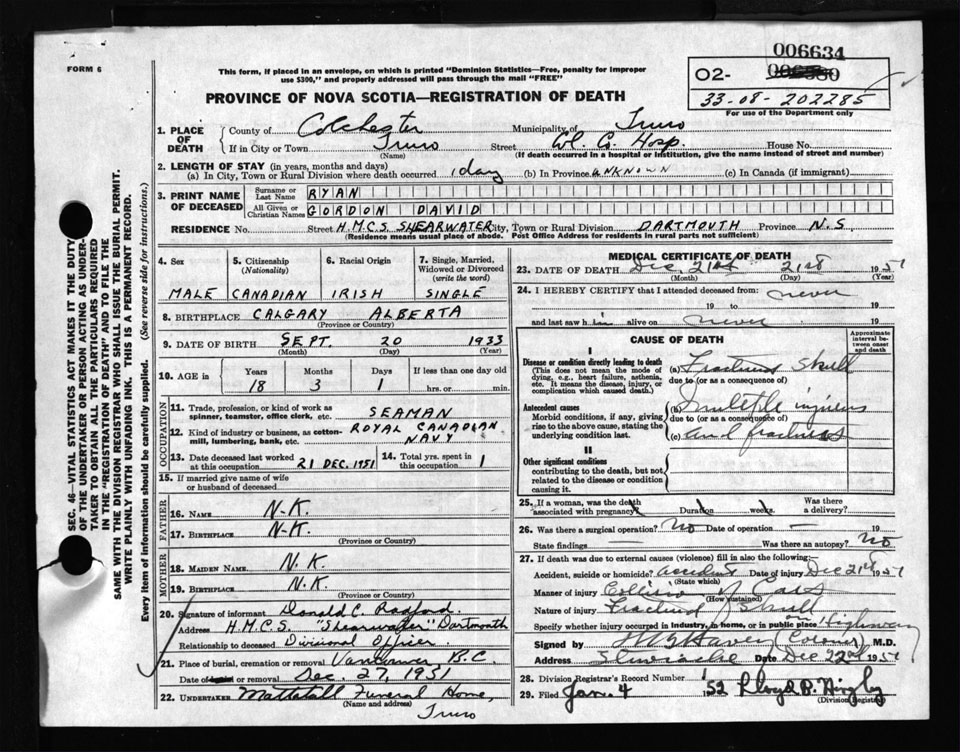 006634
FORM 6
This form, if placed in an envelope, on which is printed "Dominion Statistics—Free, penalty for improper
use $300," and properly addressed will pass through the mail "FREE"
O2-
33-08-202285
For use of the Department only
PROVINCE OF NOVA SCOTIA—REGISTRATION OF DEATH
1. PLACE OF DEATH County of Colchester Municipality of Truro
If in City or Town Truro Street Col. Co. Hosp. House No.
(Name) (If death occurred in a hospital or institution, give the name instead of street and number)
2. LENGTH OF STAY (in years, months and days)
(a) In City, Town or Rural Division where death occurred 1 day (b) In Province UNKNOWN (c) In Canada (if immigrant)
3. PRINT NAME OF DECEASED Surname or Last Name RYAN
All Given or Christian Names GORDON DAVID
RESIDENCE No. Street H.M.C.S. SHEARWATER City, Town or Rural Division DARTMOUTH Province N.S.
(Residence means usual place of abode. Post Office Address for residents in rural parts not sufficient)
4. Sex MALE
5. Citizenship (Nationality) CANADIAN
6. Racial Origin IRISH
7. Single, Married, Widowed or Divorced (write the word) SINGLE
8. BIRTHPLACE CALGARY ALBERTA
(Province or Country)
9. DATE OF BIRTH SEPT. 20 1933
(Month) (Day) (Year)
10. AGE in Years Months Days If less than one day old
18 3 1 hrs. or min.
OCCUPATION
11. Trade, profession, or kind of work as spinner, teamster, office clerk, etc. SEAMAN
12. Kind of industry or business, as cotton-mill, lumbering, bank, etc. ROYAL CANADIAN NAVY
13. Date deceased last worked at this occupation 21 DEC. 1951
14. Total yrs. spent in this occupation 1
15. If married give name of wife or husband of deceased
FATHER
16. NAME N-K.
17. BIRTHPLACE N-K.
(Province or Country)
MOTHER
18. MAIDEN NAME N.K.
19. BIRTHPLACE N.K.
(Province or Country)
20. Signature of informant Donald C. Radford.
Address H.M.C.S. "Shearwater" Dartmouth
Relationship to deceased Divisional Officer
21. Place of burial, cremation or removal Vancouver B.C.
Date of burial or removal Dec. 27, 1951
22. UNDERTAKER Mattatall Funeral Home,
(Name and address)
Truro
MEDICAL CERTIFICATE OF DEATH
23. DATE OF DEATH Dec. 21st 21st 1951
(Month) (Day) (Year)
24. I HEREBY CERTIFY that I attended deceased from never
19 to 19
and last saw him alive on never 19
CAUSE OF DEATH
Approximate interval between onset and death
I
Disease or condition directly leading to death
(This does not mean the mode of dying, e.g., heart failure, asthenia, etc. It means the disease, injury, or complication which caused death.)
(a) Fractured Skull
due to (or as a consequence of)
Antecedent causes
Morbid conditions, if any, giving rise to the above cause, stating the underlying condition last.
(b) Multiple injuries
due to (or as a consequence of)
(c) and fractures
II
Other significant conditions
contributing to the death, but not related to the disease or condition causing it.
25. If a woman, was the death associated with pregnancy? Duration weeks. Was there a delivery?
26. Was there a surgical operation? No Date of operation — 19
State findings — Was there an autopsy? No
27. If death was due to external causes (violence) fill in also the following:
Accident, suicide or homicide? accident Date of injury Dec 21st 1951
(State which)
Manner of injury Collision of cars
(How sustained)
Nature of injury Fractured Skull
Specify whether injury occurred in industry, in home, or in public place on Highway
Signed by (Coroner) M.D.
Address Date Dec 22nd 1951
28. Division Registrar's Record Number 1
29. Filed Jan. 4 1952 Lloyd B.
(Division Registrar)
SEC. 46—VITAL STATISTICS ACT MAKES IT THE DUTY
OF THE UNDERTAKER OR PERSON ACTING AS UNDER-
TAKER TO OBTAIN ALL THE PARTICULARS REQUIRED
IN THE "REGISTRATION OF DEATH" AND TO FILE THE
SAME WITH THE DIVISION REGISTRAR WHO SHALL ISSUE THE BURIAL PERMIT.
WRITE PLAINLY WITH UNFADING INK. THIS IS A PERMANENT RECORD.
Every item of information should be carefully supplied. (See reverse side for instructions.)